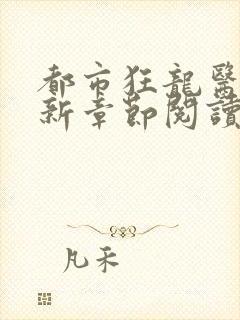 都市狂龍醫
新章節閱讀
凡禾